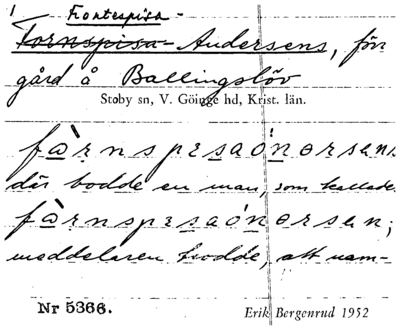 1 Frontespisa-
Tornspisa- Andersens, för
gård å Ballingslöv
Stoby sn, V. Göinge hd, Krist. län.
fàrnspɛsaónərsens
där bodde en man, som kallades
fàrnspɛsaónərsen;
meddelaren trodde, att nam-
Nr 5366. Erik Bergenrud 1952